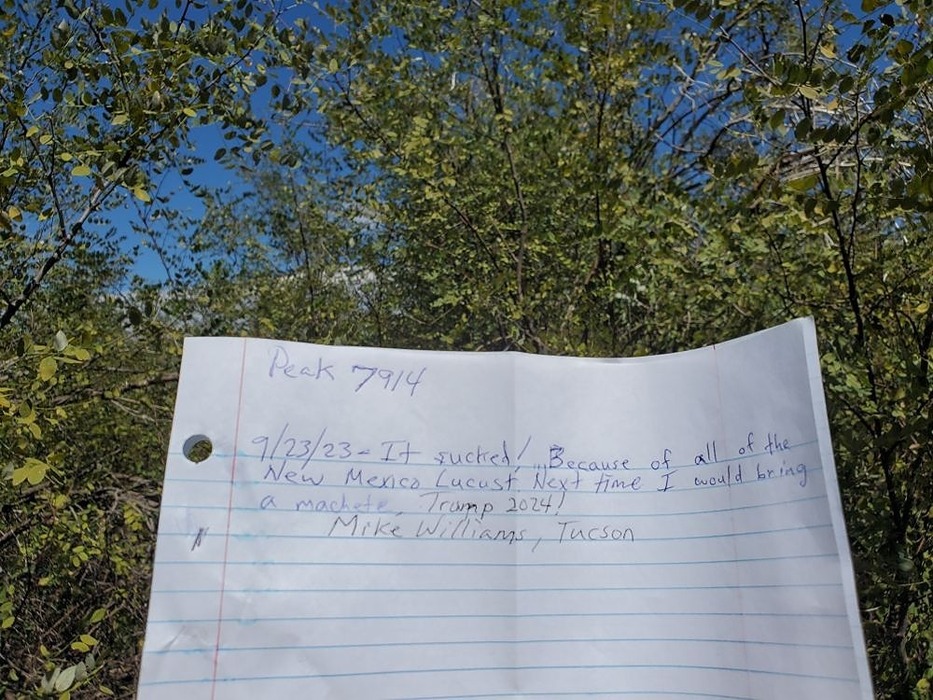 Peak 7914
9/23/23 - It sucked! Because of all of the
New Mexico Lucust. Next time I would bring
a machete. Trump 2024!
Mike Williams, Tucson